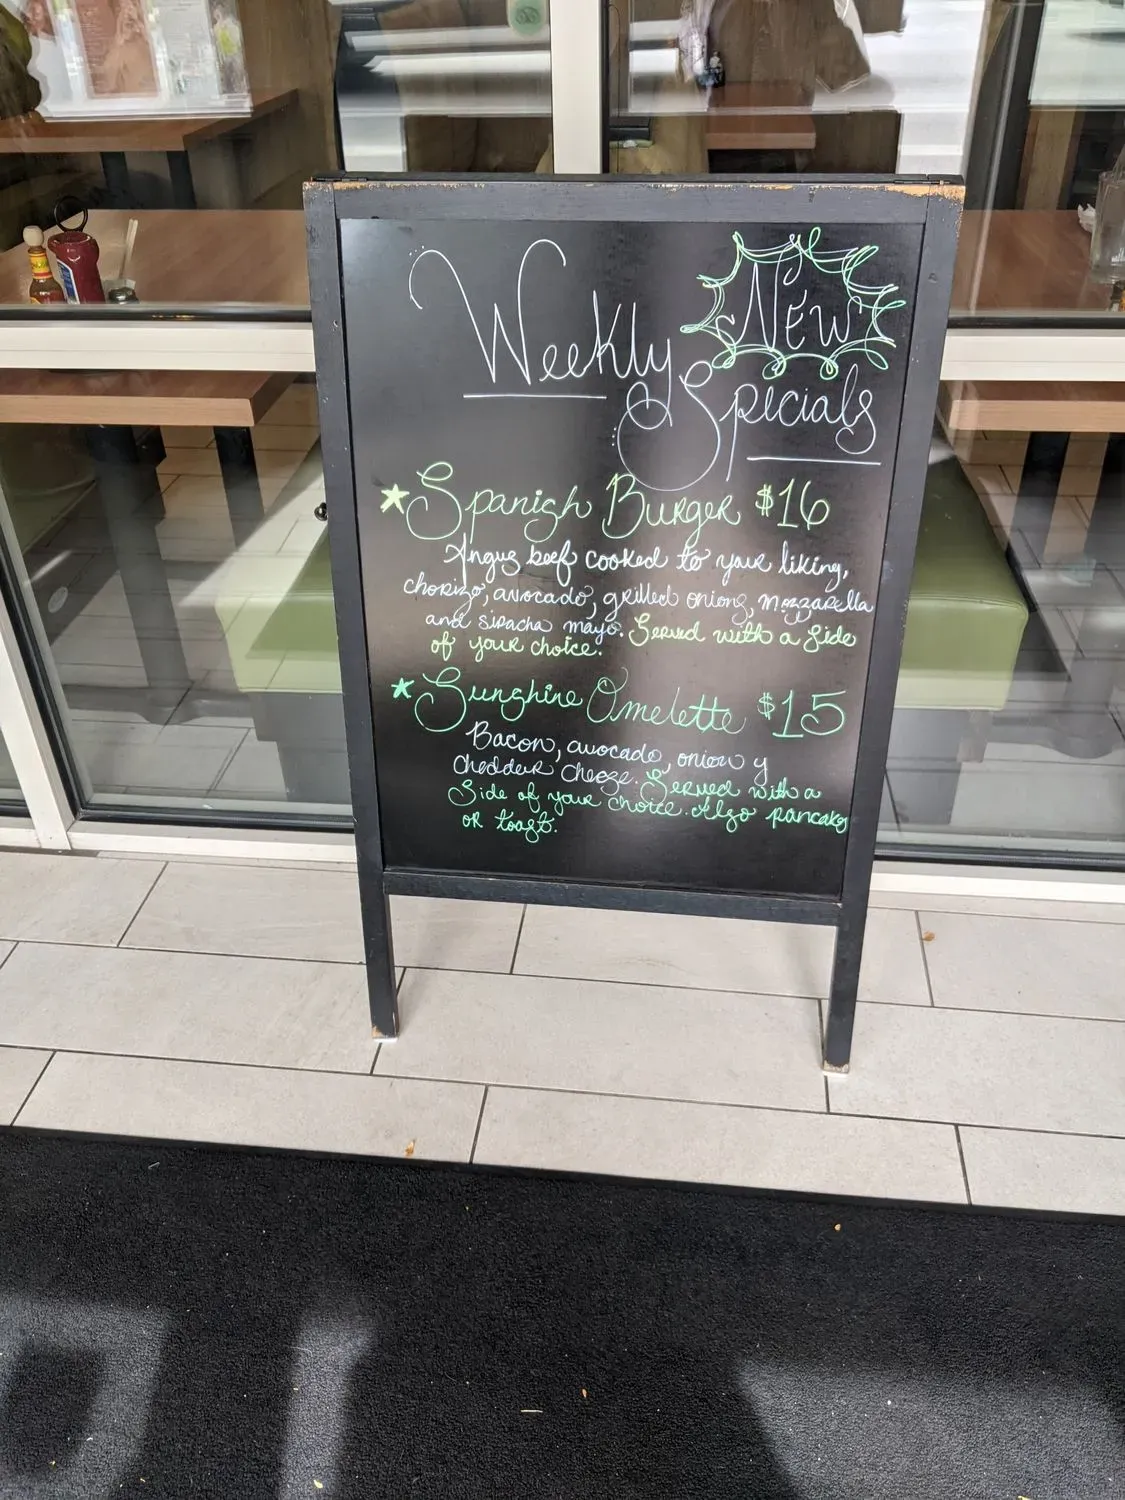 New
Weekly
Specials
Spanish Burger $16
Angus beef cooked to your liking,
chorizo, avocado, grilled onions, mozzarella
and siracha mayo. Served with a side
of your choice.
Sunshine Omelette $15
Bacon, avocado, onion y
chedder cheese. Served with a
side of your choice. Also pancakes
or toast.